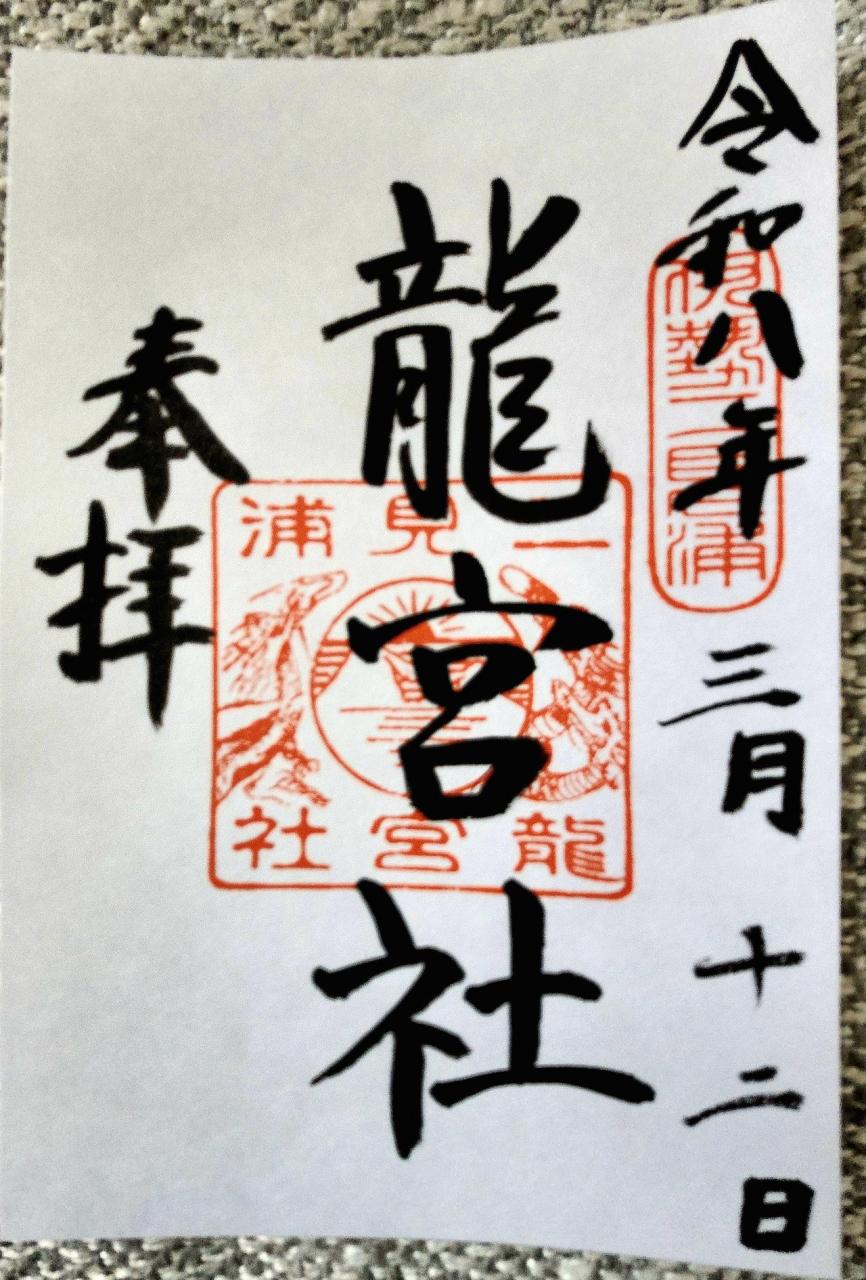 令和八年三月十二日
伊勢二見浦
龍宮社
二見浦
龍宮社
奉拝